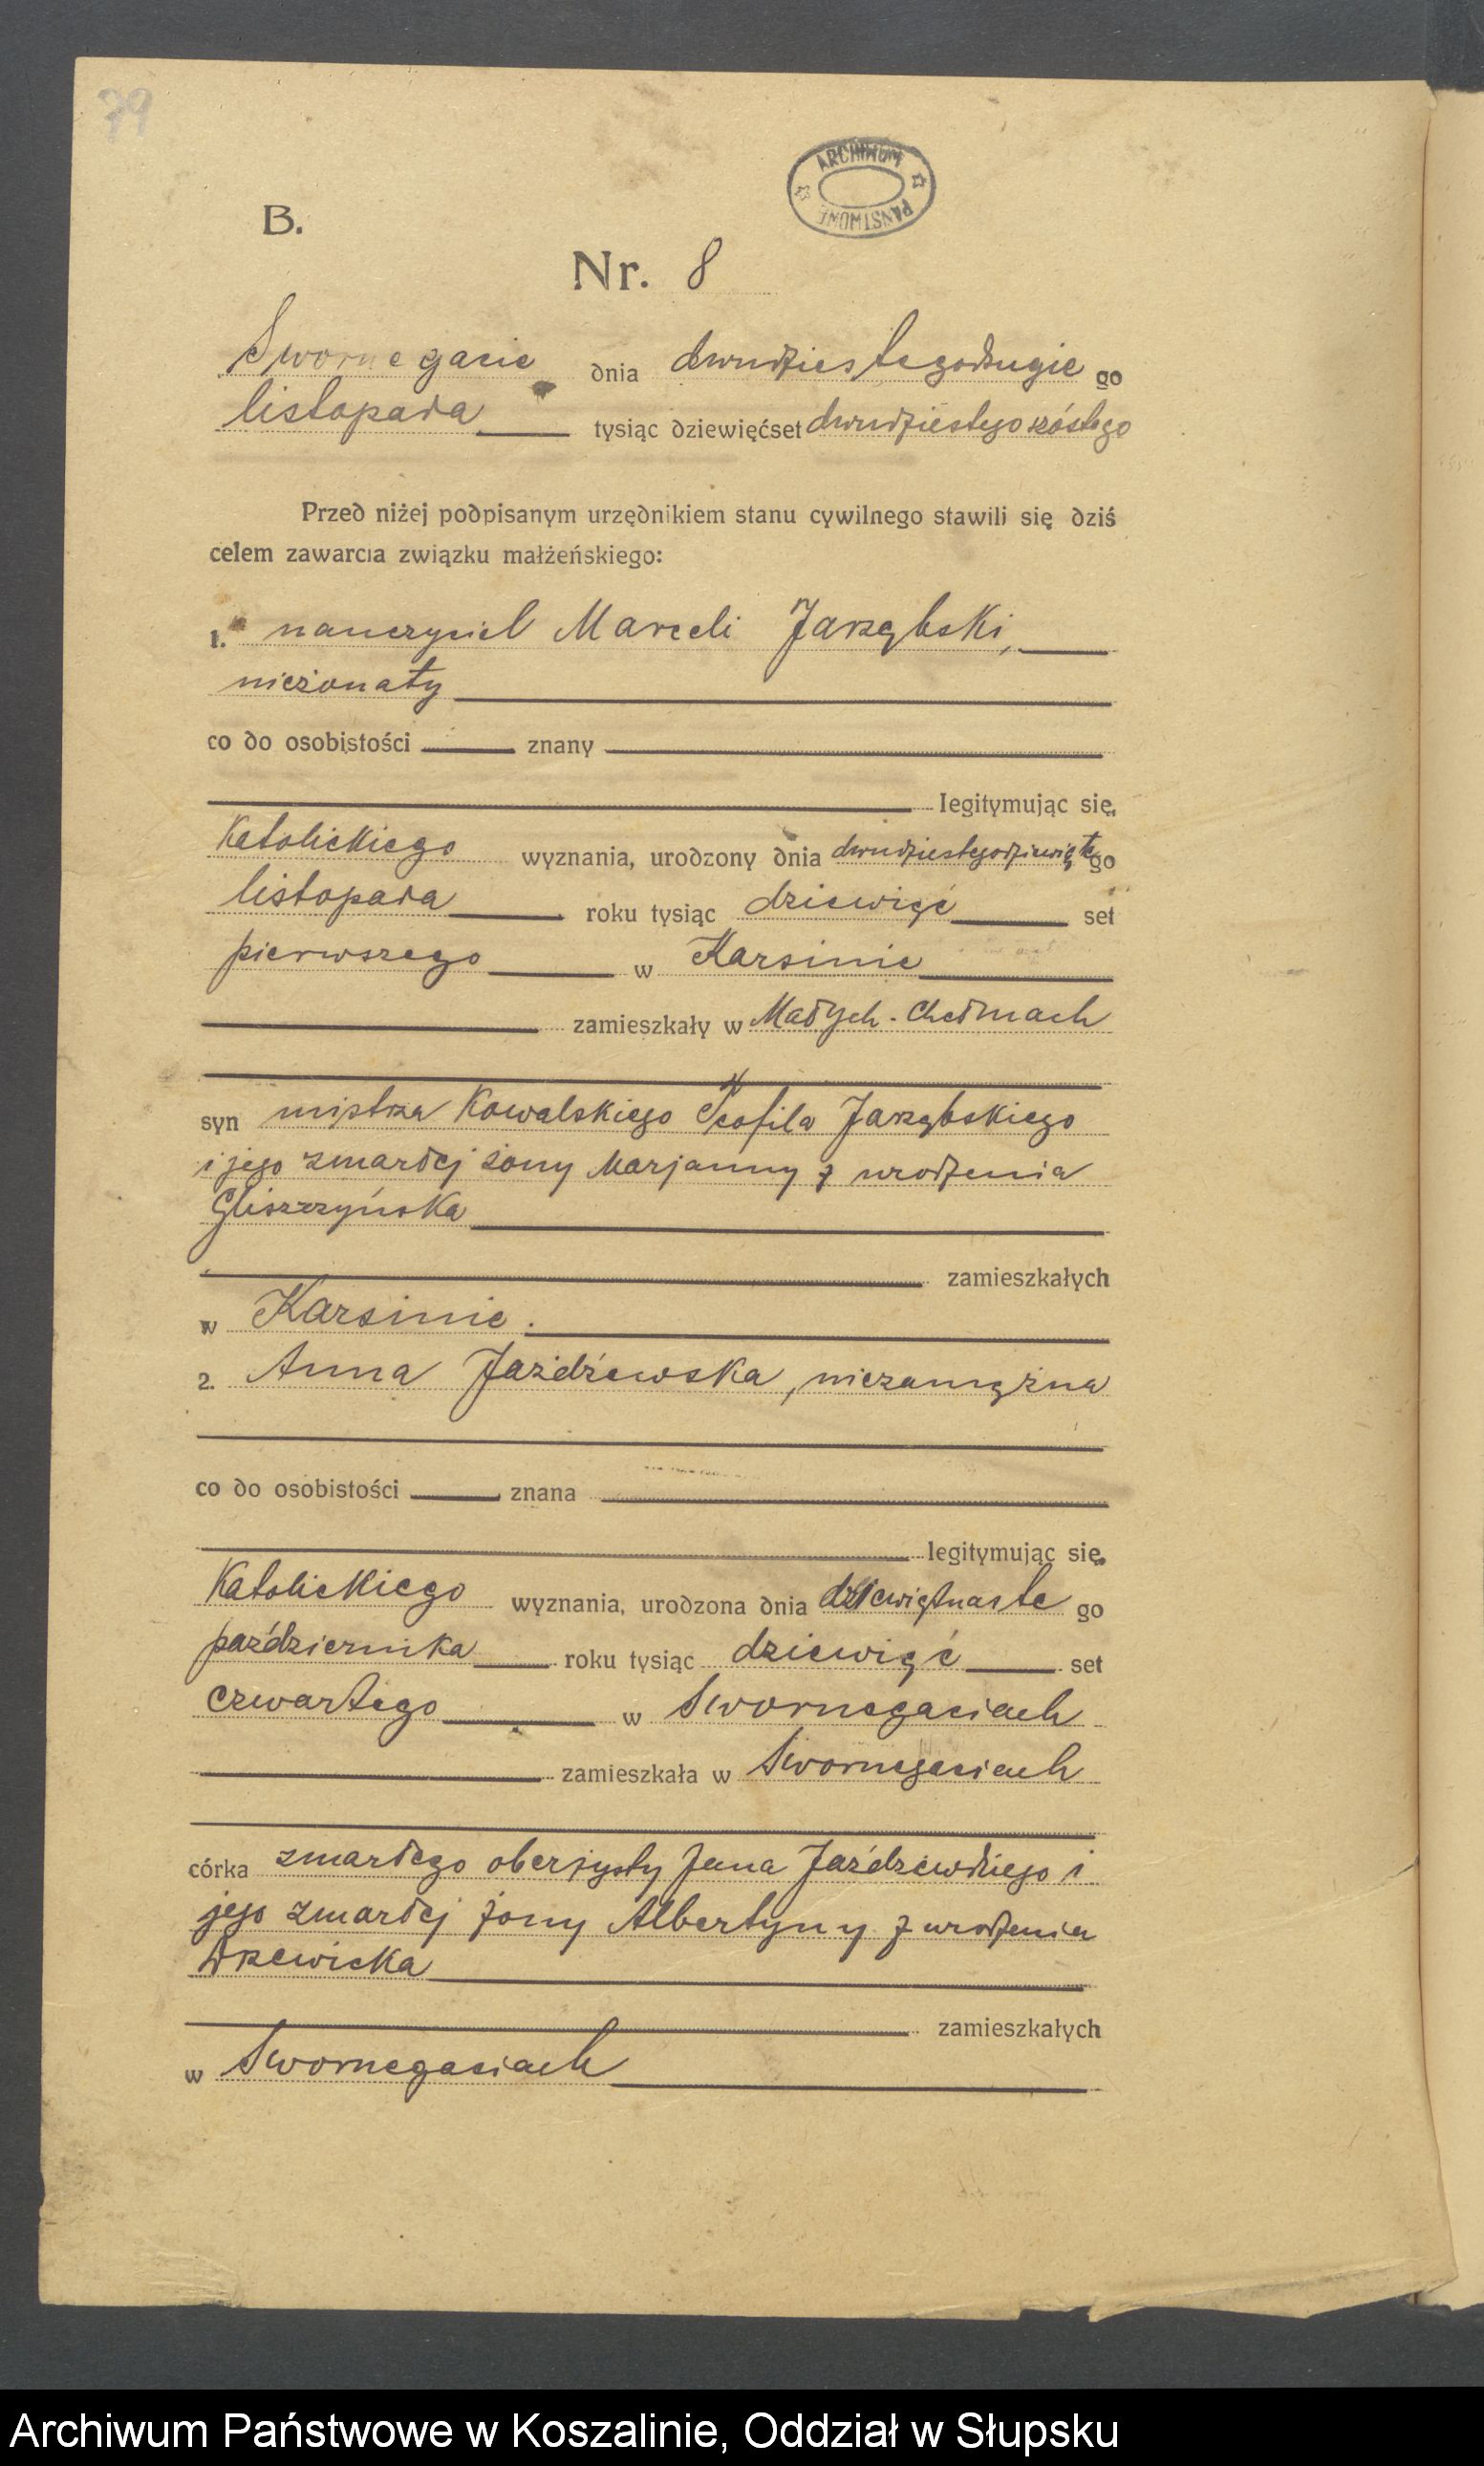 79
ARCHIWUM PAŃSTWOWE
B.
Nr. 8
Swornegacie dnia dwudziestegodrugiego
listopada tysiąc dziewięćset dwudziestego szóstego
Przed niżej podpisanym urzędnikiem stanu cywilnego stawili się dziś
celem zawarcia związku małżeńskiego:
1. nauczyciel Marceli Jarzębski,
nieżonaty
co do osobistości znany
legitymując się,
Katolickiego wyznania, urodzony dnia dwudziestegodziewiątego
listopada roku tysiąc dziewięć set
pierwszego w Karsinie
zamieszkały w Małych-Chełmach
syn mistrza Kowalskiego Teofila Jarzębskiego
i jego zmarłej żony Marjanny z urodzenia
Gliszczyńska
zamieszkałych
w Karsinie.
2. Anna Jażdżewska, niezamężna
co do osobistości znana
legitymując się,
Katolickiego wyznania, urodzona dnia dziewiętnastego
października roku tysiąc dziewięć set
czwartego w Swornegaciach
zamieszkała w Swornegaciach
córka zmarłego oberżysty Jana Jażdżewskiego i
jego zmarłej żony Albertyny z urodzenia
Drzewicka
zamieszkałych
w Swornegaciach
Archiwum Państwowe w Koszalinie, Oddział w Słupsku